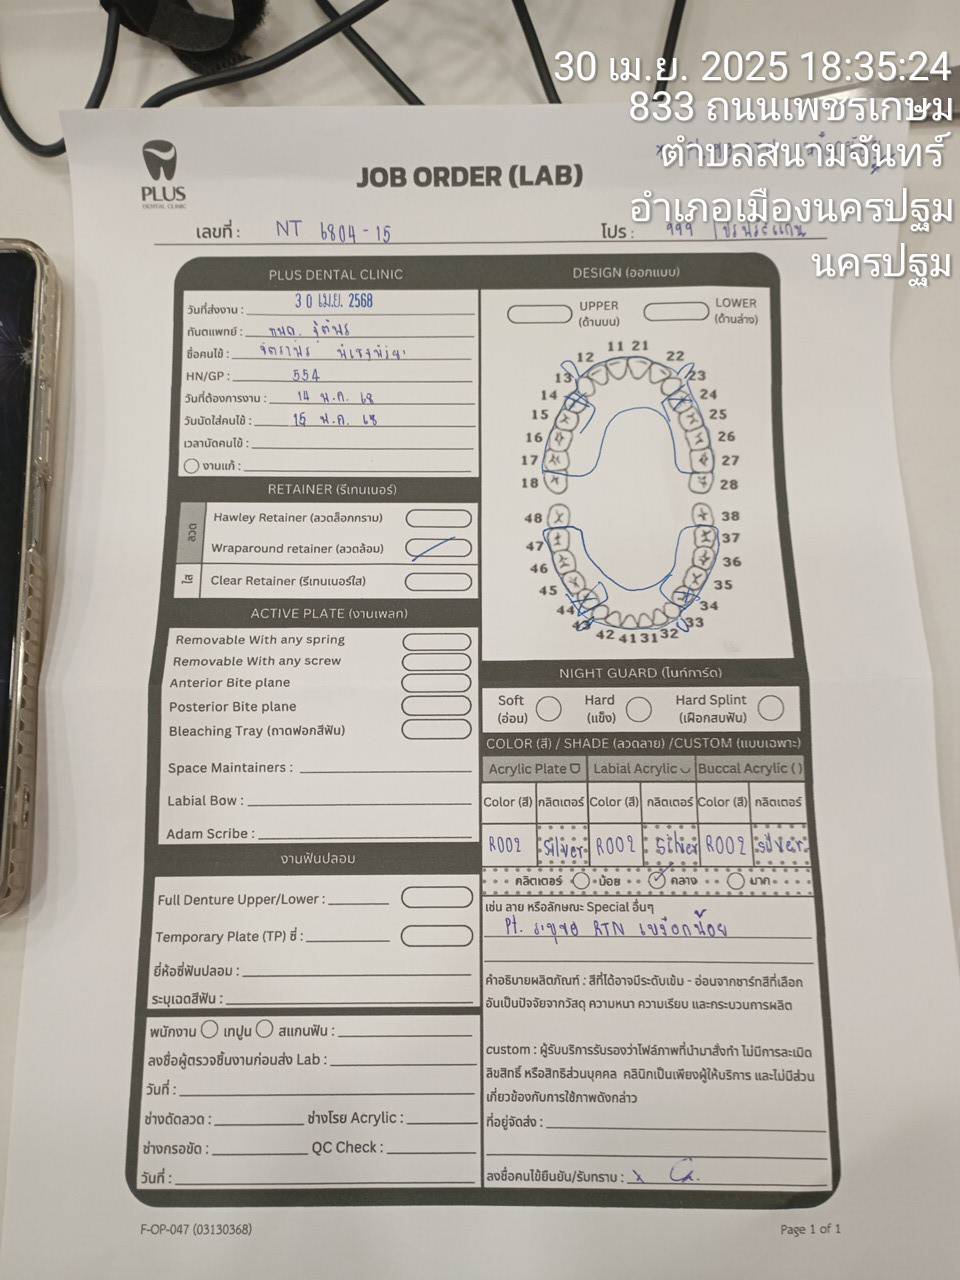 30 เม.ย. 2025 18:35:24
833 ถนนเพชรเกษม
ตำบลสนามจันทร์
อำเภอเมืองนครปฐม
นครปฐม
PLUS
DENTAL CLINIC
JOB ORDER (LAB)
เลขที่ : NT 6804-15
โปร : 999
PLUS DENTAL CLINIC
วันที่ส่งงาน : 30 เม.ย. 2568
ทันตแพทย์ :
ชื่อคนไข้ :
HN/GP : 554
วันที่ต้องการงาน : 14 พ.ค. 68
วันนัดใส่คนไข้ : 15 พ.ค. 68
เวลานัดคนไข้ :
งานแก้ :
RETAINER (รีเทนเนอร์)
ลวด
Hawley Retainer (ลวดล็อกกราม)
Wraparound retainer (ลวดล้อม)
ใส
Clear Retainer (รีเทนเนอร์ใส)
ACTIVE PLATE (งานเพลท)
Removable With any spring
Removable With any screw
Anterior Bite plane
Posterior Bite plane
Bleaching Tray (ถาดฟอกสีฟัน)
Space Maintainers :
Labial Bow :
Adam Scribe :
งานฟันปลอม
Full Denture Upper/Lower :
Temporary Plate (TP) ซี่ :
ยี่ห้อซี่ฟันปลอม :
ระบุเฉดสีฟัน :
พนักงาน เทปูน สแกนฟัน :
ลงชื่อผู้ตรวจชิ้นงานก่อนส่ง Lab :
วันที่ :
ช่างดัดลวด : ช่างโรย Acrylic :
ช่างกรอขัด : QC Check :
วันที่ :
DESIGN (ออกแบบ)
UPPER
(ด้านบน)
LOWER
(ด้านล่าง)
11 21
12 22
13 23
14 24
15 25
16 26
17 27
18 28
48 38
47 37
46 36
45 35
44 34
43 33
42 41 31 32
NIGHT GUARD (ไนท์การ์ด)
Soft
(อ่อน)
Hard
(แข็ง)
Hard Splint
(เฝือกสบฟัน)
COLOR (สี) / SHADE (ลวดลาย) /CUSTOM (แบบเฉพาะ)
Acrylic Plate Labial Acrylic Buccal Acrylic ( )
Color (สี) กลิตเตอร์ Color (สี) กลิตเตอร์ Color (สี) กลิตเตอร์
R002 Silver R002 Silver R002 silver
กลิตเตอร์ น้อย กลาง มาก
เช่น ลาย หรือลักษณะ Special อื่นๆ
Pt. ระบุขอ RTN เหงือกน้อย
คำอธิบายผลิตภัณฑ์ : สีที่ได้อาจมีระดับเข้ม - อ่อนจากชาร์ทสีที่เลือก
อันเป็นปัจจัยจากวัสดุ ความหนา ความเรียบ และกระบวนการผลิต
custom : ผู้รับบริการรับรองว่าไฟล์ภาพที่นำมาสั่งทำ ไม่มีการละเมิด
ลิขสิทธิ์ หรือสิทธิส่วนบุคคล คลินิกเป็นเพียงผู้ให้บริการ และไม่มีส่วน
เกี่ยวข้องกับการใช้ภาพดังกล่าว
ที่อยู่จัดส่ง :
ลงชื่อคนไข้ยืนยัน/รับทราบ : x
F-OP-047 (03130368)
Page 1 of 1